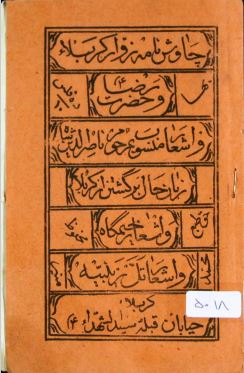 چاوش نامه زوار کربلاء
و حضرت رضا (ع)
و اشعار منسوب بمرحوم ناصرالدین شاه
زبان حال برگشتن از کربلا
و اشعار خیمه‌گاه
و اشعار تل زینبیه
کربلاء
خیابان قبله سیدالشهداء (ع)
۵۰۱۸